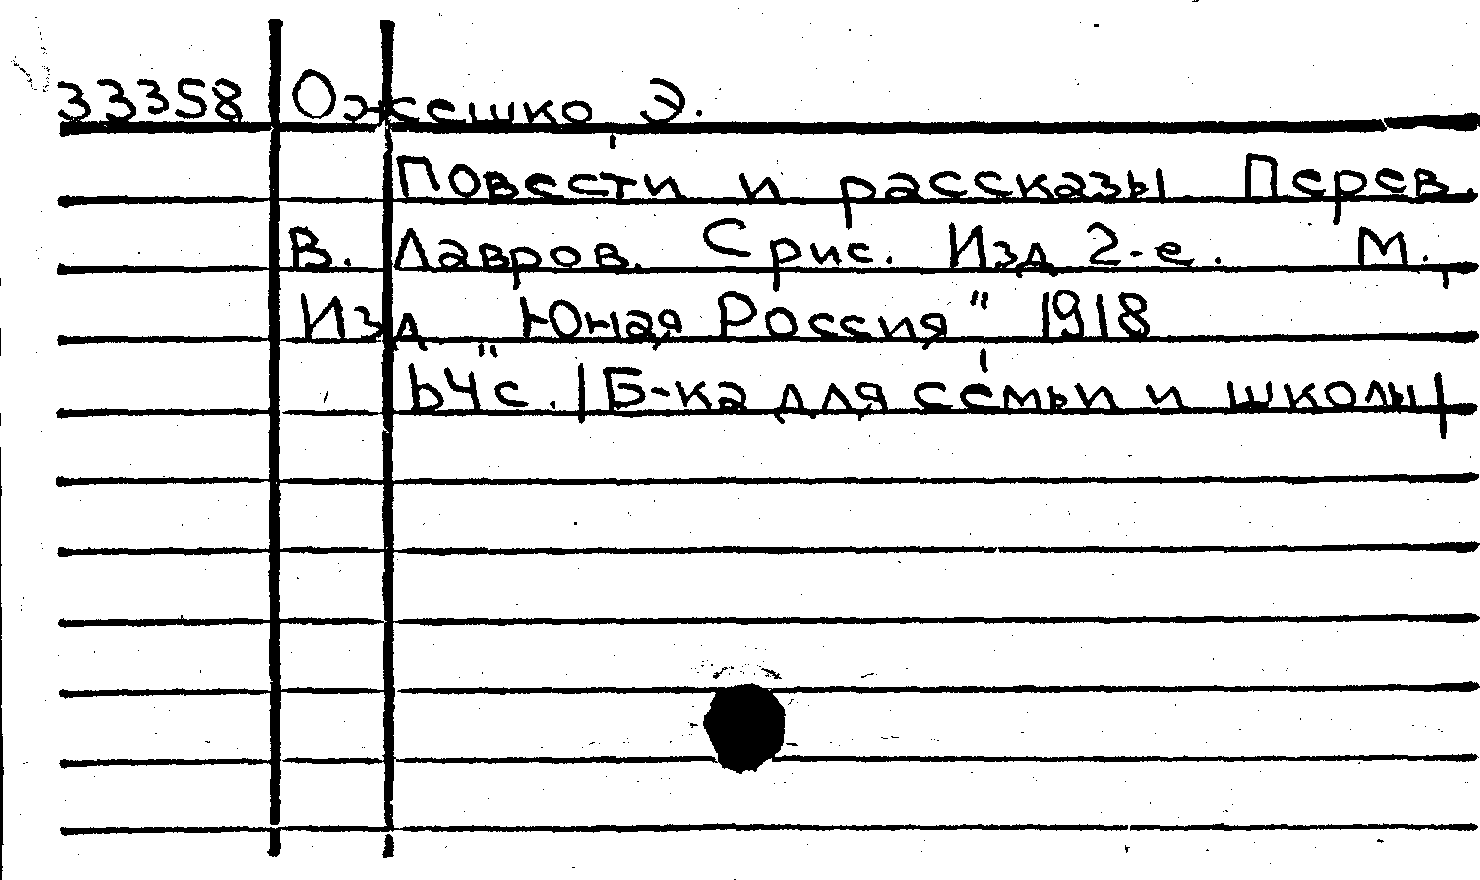 33358 Ожешко Э.
Повести и рассказы Перев.
В. Лавров. С рис. Изд 2-е. М.,
Изд „Юная Россия" 1918
64 с. /Б-ка для семьи и школы/